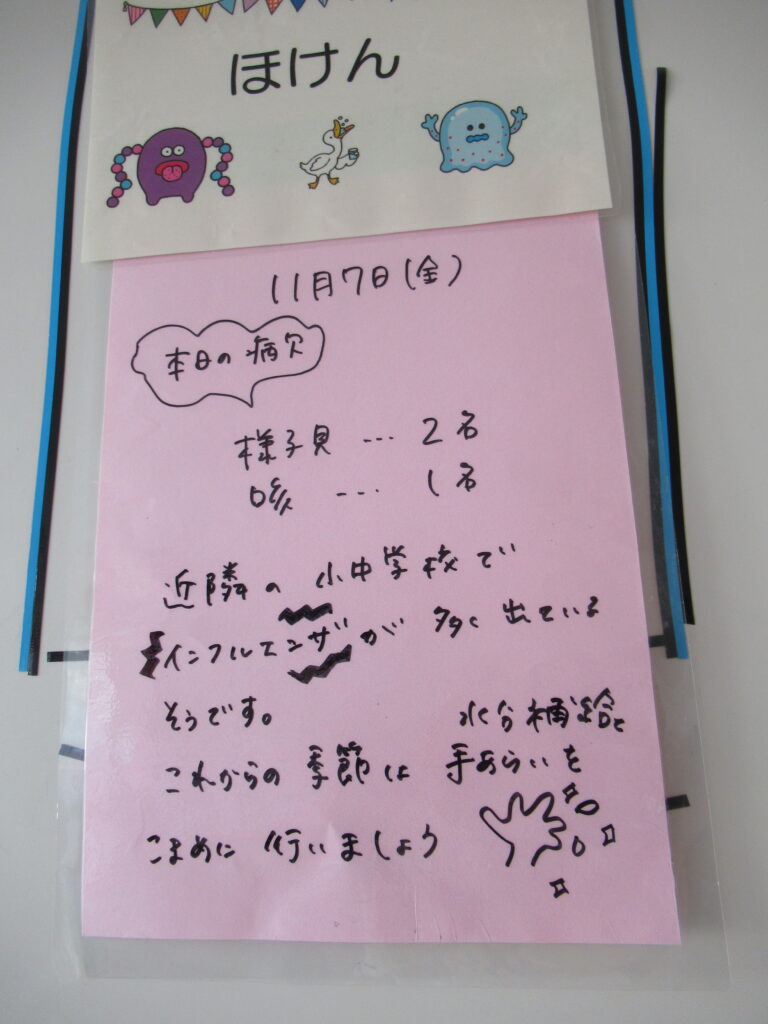 ほけん
11月7日(金)
本日の病欠
様子見 … 2名
咳 … 1名
近隣の小中学校で
インフルエンザが多く出ている
そうです。
水分補給と
これからの季節は手あらいを
こまめに行いましょう